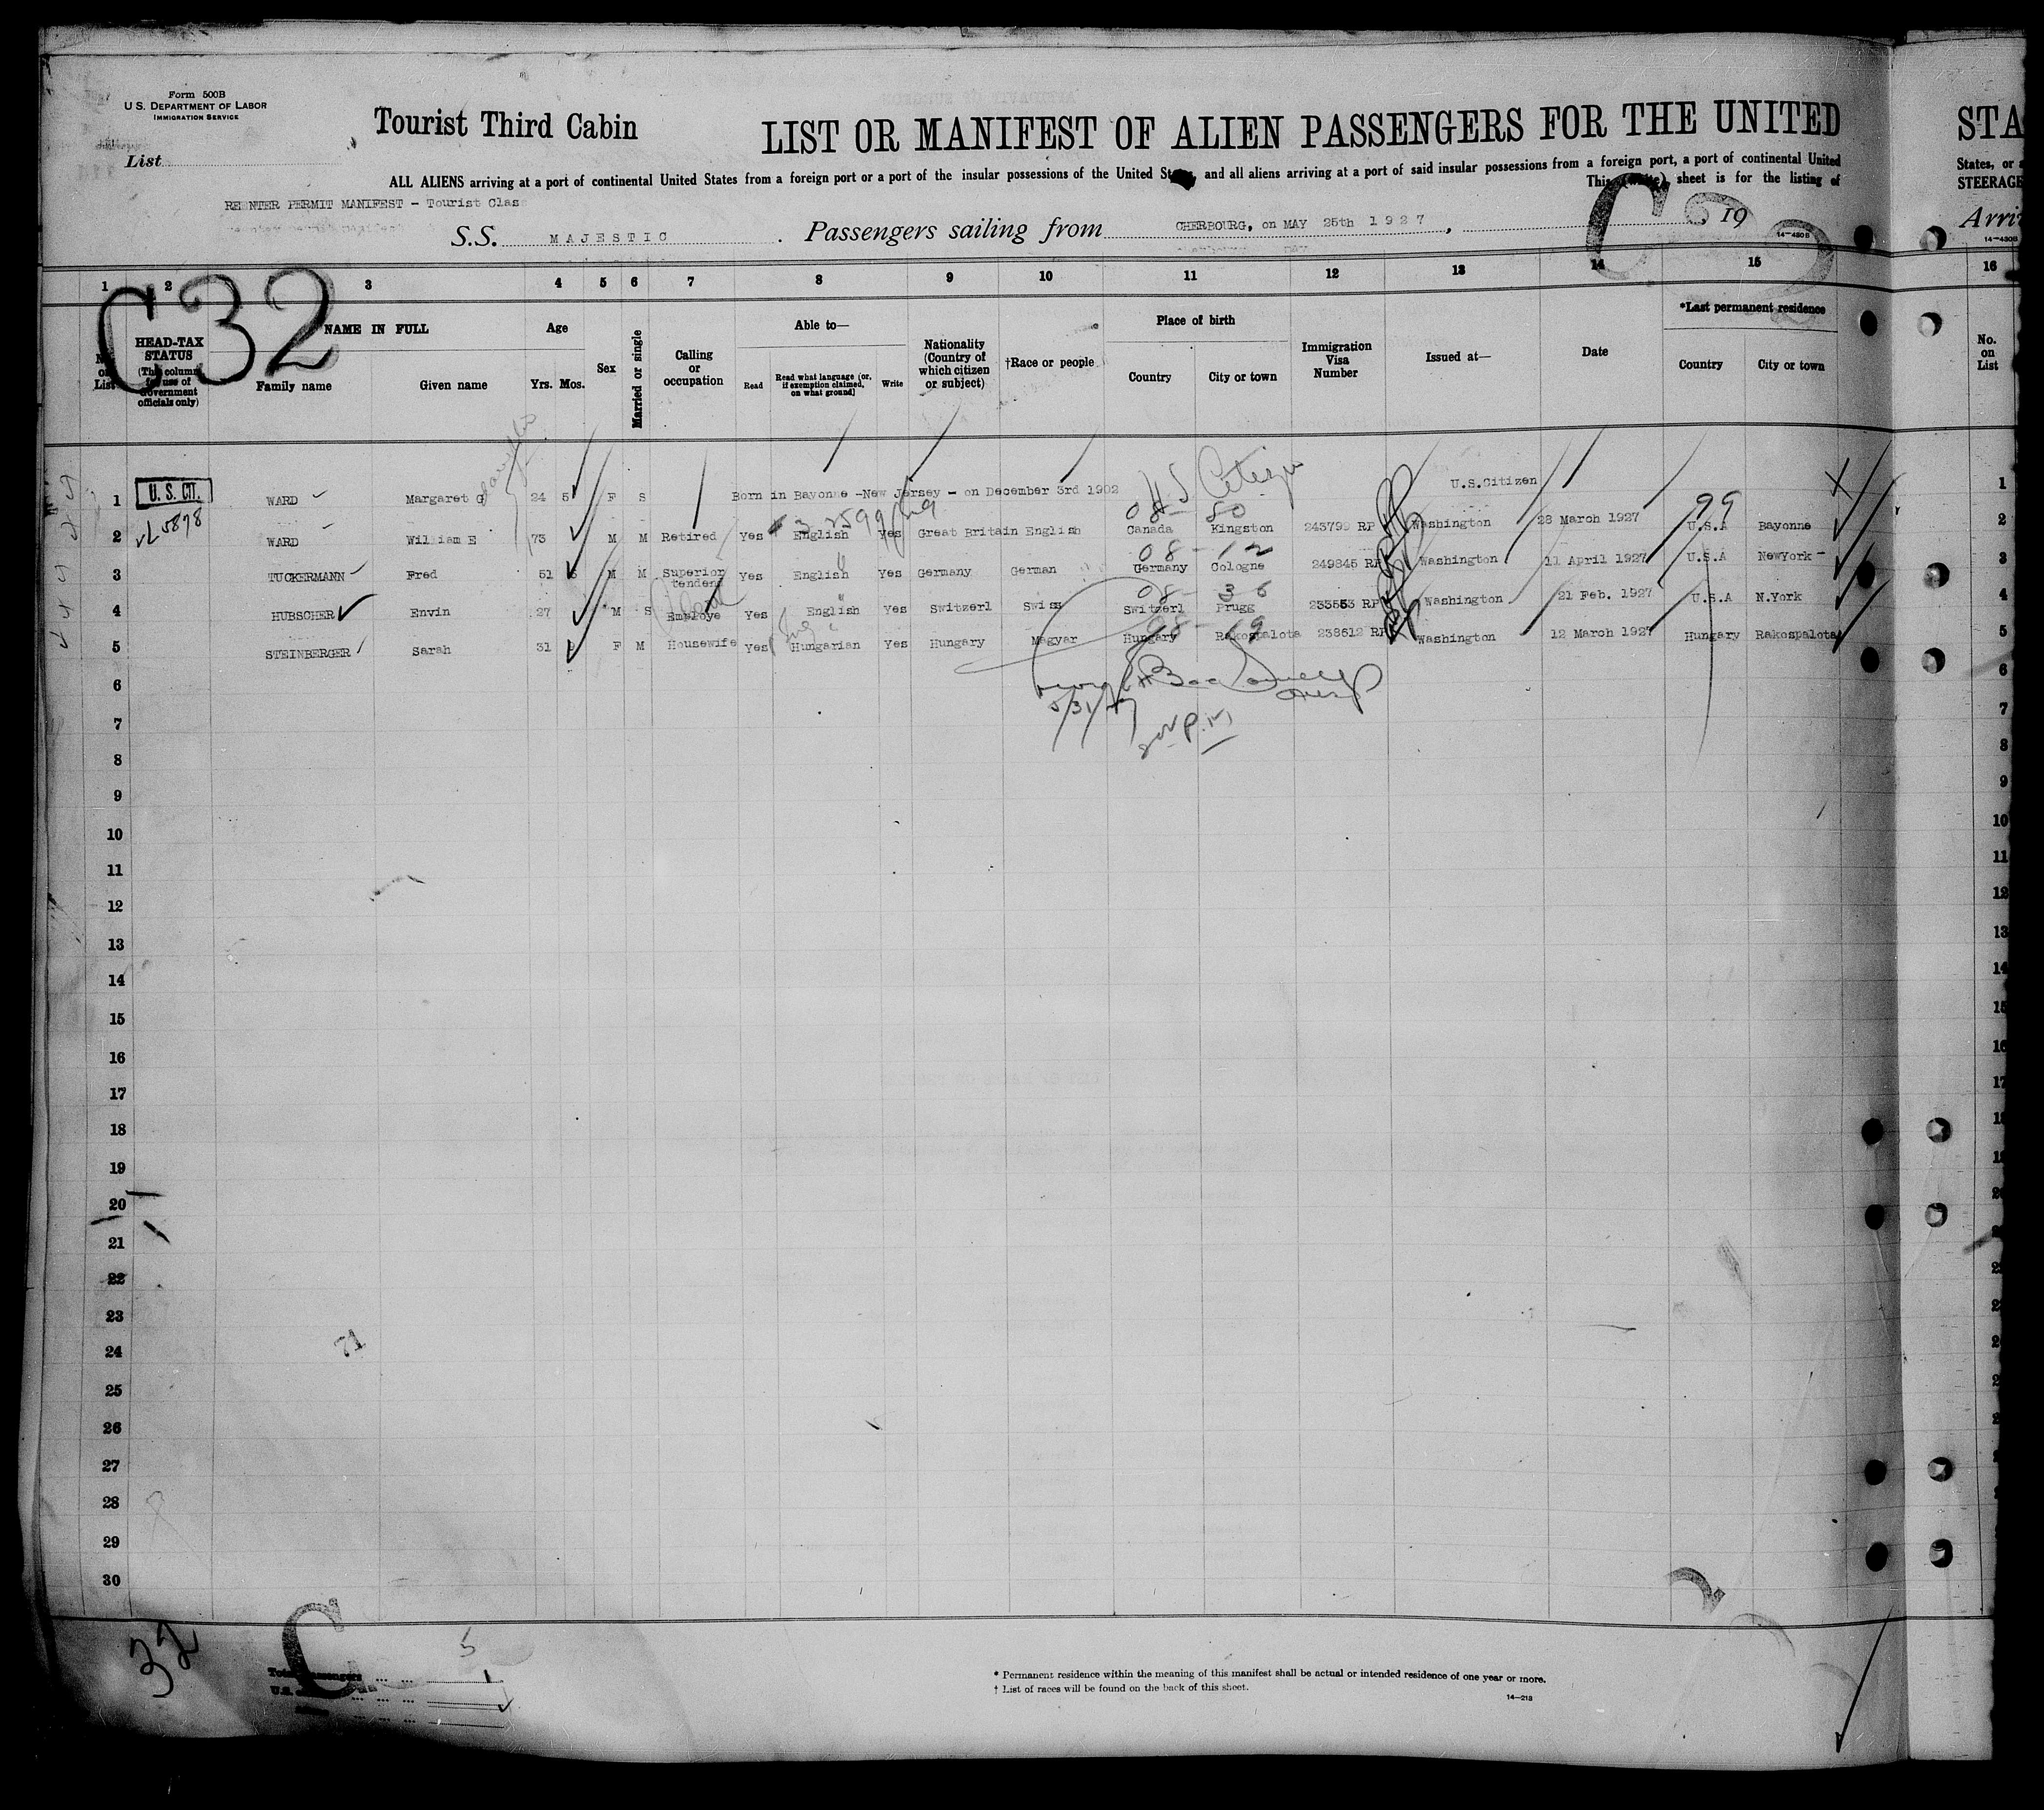 Form 500B
U. S. DEPARTMENT OF LABOR
IMMIGRATION SERVICE
List
Tourist Third Cabin
LIST OR MANIFEST OF ALIEN PASSENGERS FOR THE UNITED
STA
ALL ALIENS arriving at a port of continental United States from a foreign port or a port of the insular possessions of the United States, and all aliens arriving at a port of said insular possessions from a foreign port, a port of continental United
States, or a
This (white) sheet is for the listing of
STEERAGE
REENTER PERMIT MANIFEST - Tourist Class
S.S. MAJESTIC . Passengers sailing from CHERBOURG, on MAY 25th 1927, , 19
Arri
14-430B
14-430B
C 32
1 2 3 4 5 6 7 8 9 10 11 12 13 14 15 16
No. on List
HEAD-TAX STATUS (This column for use of Government officials only)
NAME IN FULL
Family name Given name
Age
Yrs. Mos.
Sex
Married or single
Calling or occupation
Able to—
Read Read what language (or, if exemption claimed, on what ground) Write
Nationality (Country of which citizen or subject)
†Race or people
Place of birth
Country City or town
Immigration Visa Number
Issued at—
Date
*Last permanent residence
Country City or town
No. on List
1 U. S. CIT. WARD Margaret G 24 5 F S Born in Bayonne -New Jersey - on December 3rd 1902 U S Citizen U.S.Citizen 1
08 - 80 99
2 5878 WARD William E 73 M M Retired Yes English Yes Great Britain English Canada Kingston 243799 RP Washington 28 March 1927 U.S.A Bayonne 2
08 - 12
3 TUCKERMANN Fred 51 M M Superior tendent Yes English Yes Germany German Germany Cologne 249845 RP Washington 11 April 1927 U.S.A NewYork 3
08 - 36
4 HUBSCHER Envin 27 M S Employe Yes English Yes Switzerl Swiss Switzerl Prugg 233553 RP Washington 21 Feb. 1927 U.S.A N.York 4
08 - 19
5 STEINBERGER Sarah 31 F M Housewife Yes Hungarian Yes Hungary Magyar Hungary Rakospalota 238612 RP Washington 12 March 1927 Hungary Rakospalota 5
6 6
5/31/27
7 7
8 8
9 9
10 10
11 11
12 12
13 13
14 14
15 15
16 16
17 17
18
19
20
21
22
23
24
71
25
26
27
28
29
30
32
C
5
Total passengers ... ... 1
* Permanent residence within the meaning of this manifest shall be actual or intended residence of one year or more.
† List of races will be found on the back of this sheet.
14—213